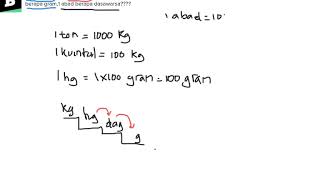 B
berapa gram,1 abad berapa dasawarsa????
1 abad = 10
1 ton = 1000 kg
1 kuintal = 100 kg
1 hg = 1x100 gram = 100 gram
kg
hg
dag
g